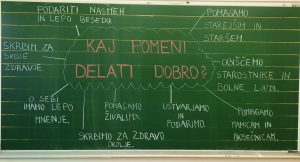 PODARITI NASMEH
IN LEPO BESEDO.
POMAGAMO
STAREJŠIM IN
STARŠEM.
SKRBIM ZA
SVOJE
ZDRAVJE.
KAJ POMENI
DELATI DOBRO?
OBIŠČEMO
STAROSTNIKE IN
BOLNE LJUDI.
O SEBI
IMAMO LEPO
MNENJE.
POMAGAMO
ŽIVALIM.
USTVARJAMO
IN
PODARIMO.
POMAGAMO
MAMICAM IN
NOSEČNICAM.
SKRBIMO ZA ZDRAVO
OKOLJE.